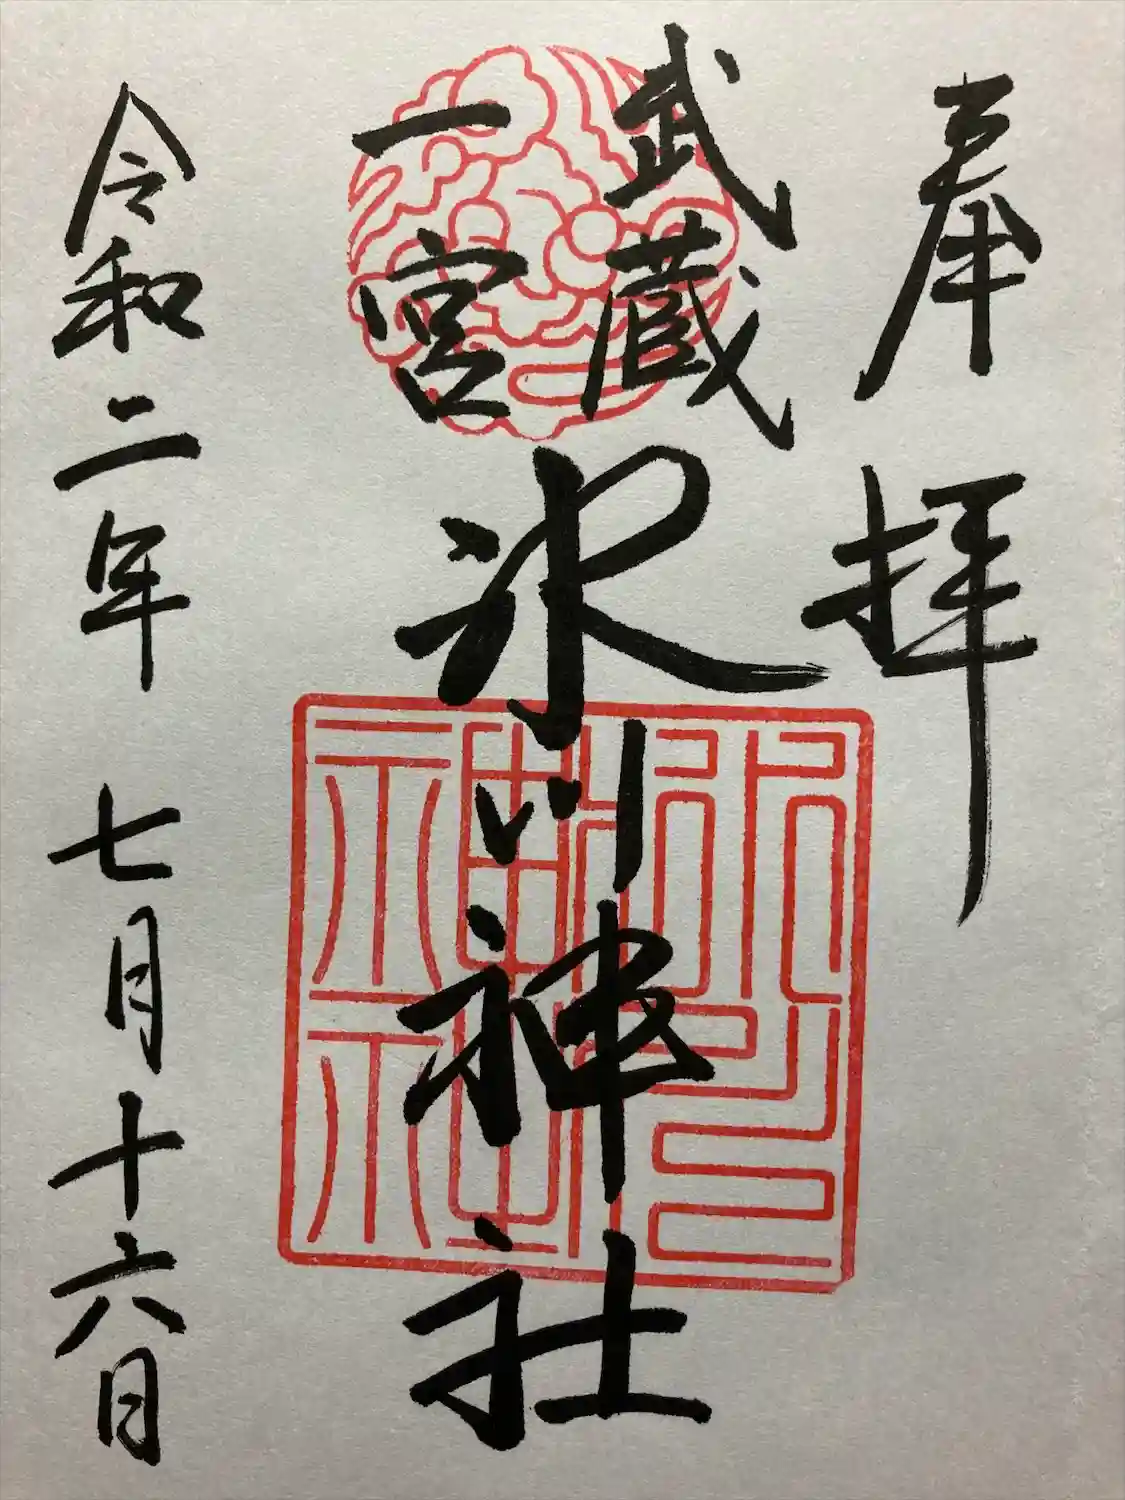 奉拝
武蔵
一宮
氷川神社
令和二年 七月十六日